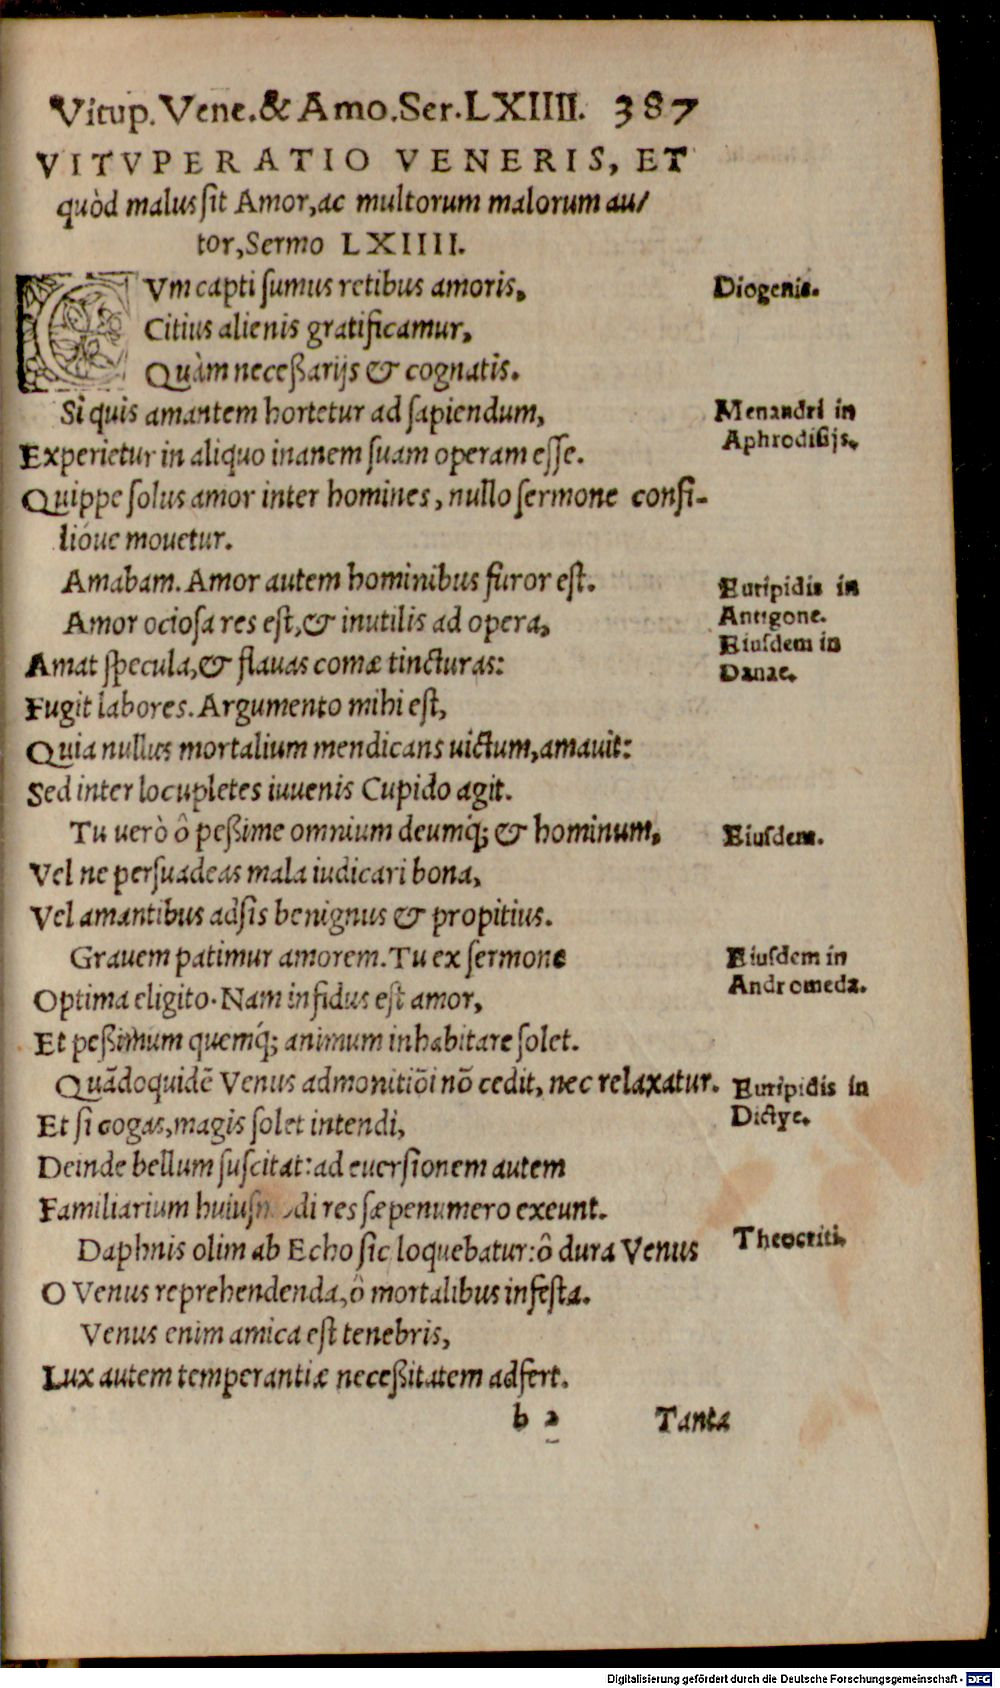 Vitup. Vene. & Amo. Ser. LXIIII. 387
VITVPERATIO VENERIS, ET
quòd malus ſit Amor, ac multorum malorum au/
tor, Sermo LXIIII.
CVm capti ſumus retibus amoris,
Diogenis.
Citius alienis gratificamur,
Quàm neceßarijs & cognatis.
Si quis amantem hortetur ad ſapiendum,
Menandri in
Aphrodißijs.
Experietur in aliquo inanem ſuam operam eſſe.
Quippe ſolus amor inter homines, nullo ſermone conſi-
lióue mouetur.
Amabam. Amor autem hominibus furor eſt.
Euripidis in
Antigone.
Amor ocioſa res eſt, & inutilis ad opera,
Eiuſdem in
Danae.
Amat ſpecula, & flauas comæ tincturas:
Fugit labores. Argumento mihi eſt,
Quia nullus mortalium mendicans uictum, amauit:
Sed inter locupletes iuuenis Cupido agit.
Tu uerò ô peßime omnium deumq́; & hominum,
Eiuſdem.
Vel ne perſuadeas mala iudicari bona,
Vel amantibus adſis benignus & propitius.
Grauem patimur amorem. Tu ex ſermone
Eiuſdem in
Andromeda.
Optima eligito. Nam infidus eſt amor,
Et peßimum quemq́; animum inhabitare ſolet.
Quādoquidē Venus admonitiōi nō cedit, nec relaxatur.
Euripidis in
Dictye.
Et ſi cogas, magis ſolet intendi,
Deinde bellum ſuſcitat: ad euerſionem autem
Familiarium huiuſmodi res ſæpenumero exeunt.
Daphnis olim ab Echo ſic loquebatur: ô dura Venus
Theocriti.
O Venus reprehendenda, ô mortalibus infeſta.
Venus enim amica eſt tenebris,
Lux autem temperantiæ neceßitatem adfert.
b 2 Tanta
Digitalisierung gefördert durch die Deutsche Forschungsgemeinschaft - DFG